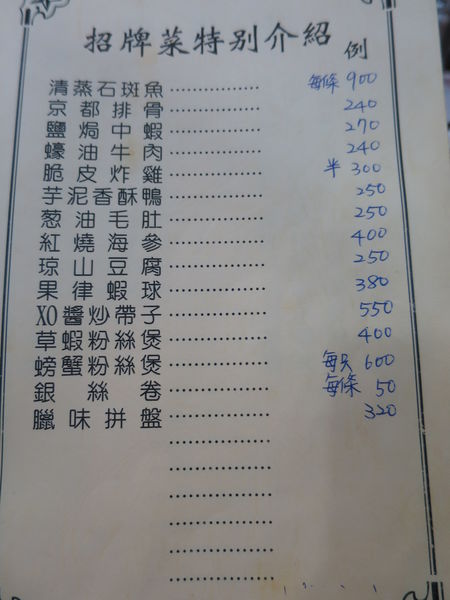 招牌菜特别介紹 例
清蒸石斑魚 ……………… 每條 900
京都排骨 ……………… 240
鹽焗中蝦 ……………… 270
蠔油牛肉 ……………… 240
脆皮炸雞 ……………… 半 300
芋泥香酥鴨 ……………… 250
葱油毛肚 ……………… 250
紅燒海參 ……………… 400
琼山豆腐 ……………… 250
果律蝦球 ……………… 380
XO醬炒帶子 ……………… 550
草蝦粉絲煲 ……………… 400
螃蟹粉絲煲 ……………… 每只 600
銀絲卷 ……………… 每條 50
臘味拼盤 ……………… 320